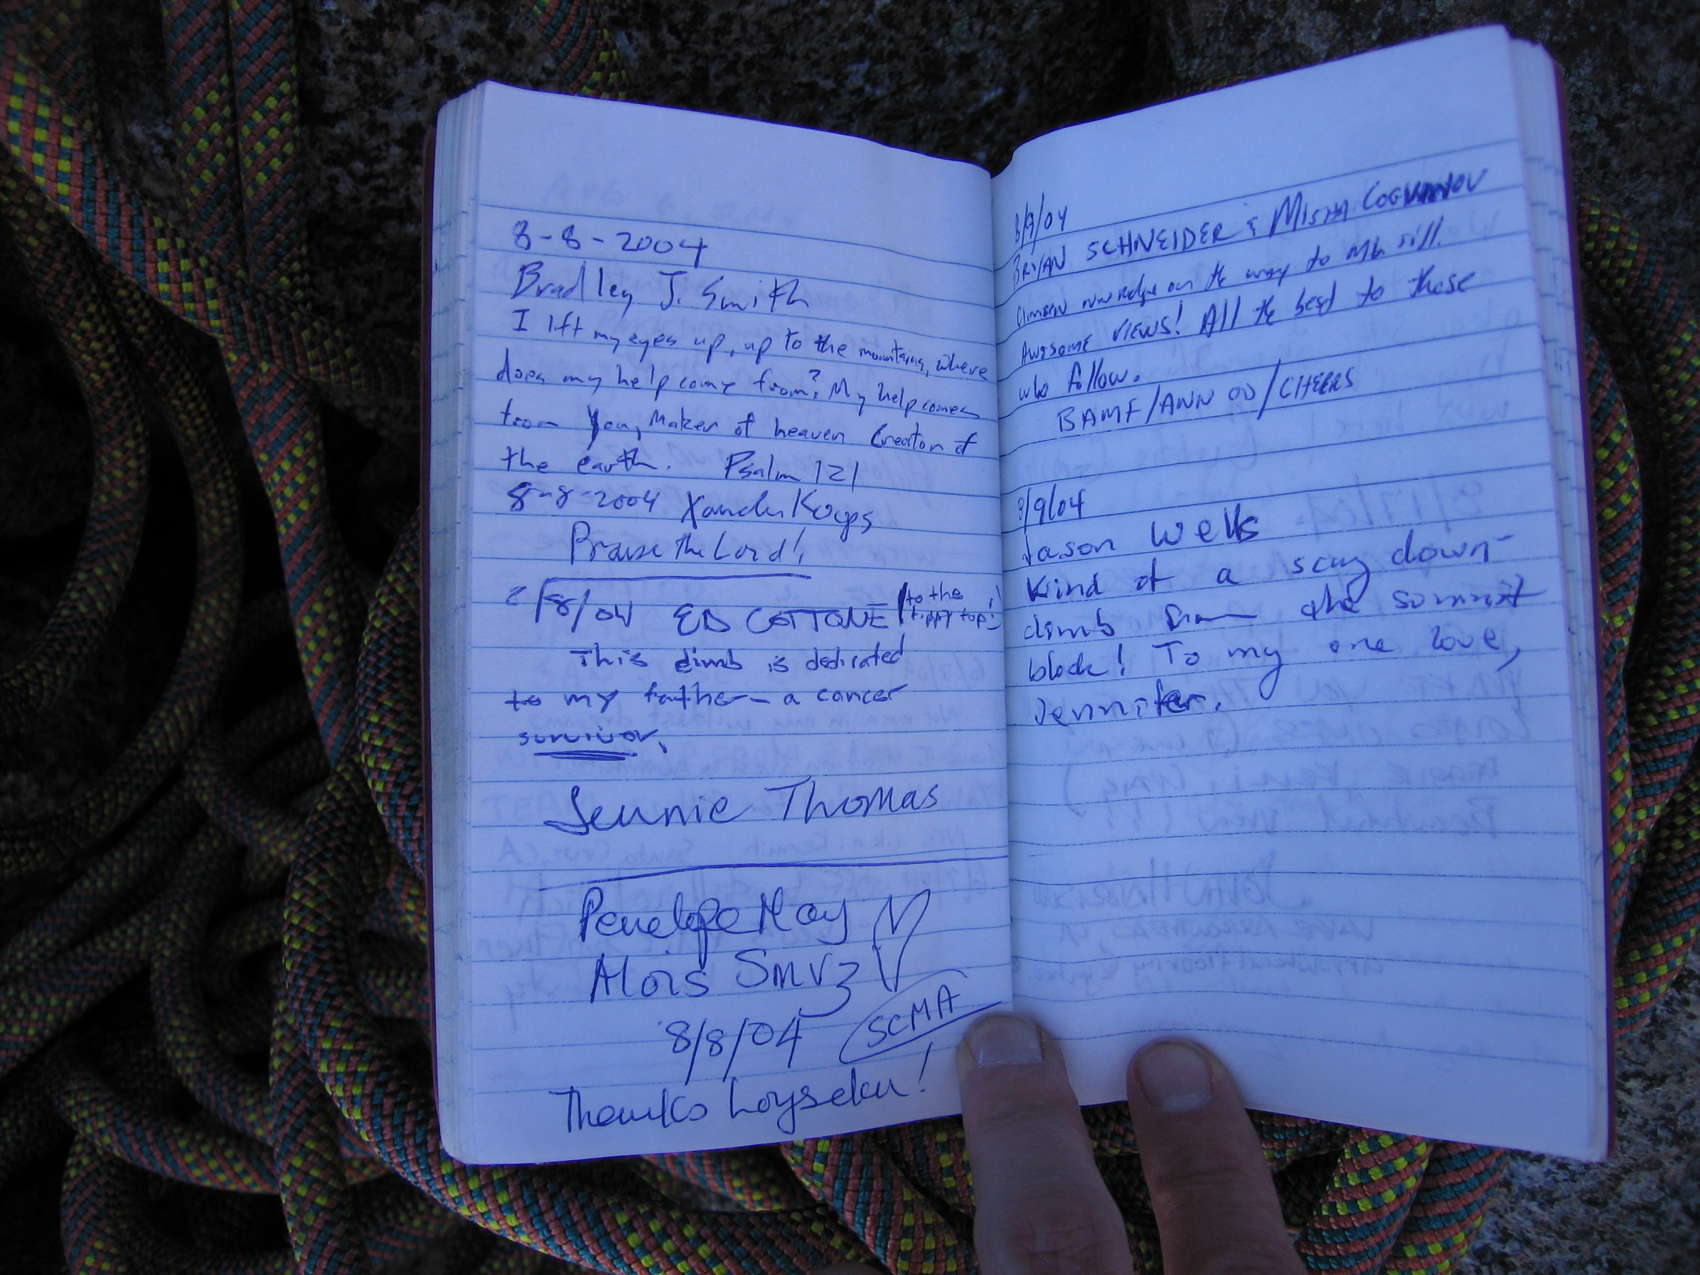 8-8-2004
Bradley J. Smith
I lift my eyes up, up to the mountains, where
does my help come from? My help comes
from You, Maker of heaven Creator of
the earth. Psalm 121
8-8-2004
Praise the Lord!
8/04 ED COTTONE to the
tippy top!
This climb is dedicated
to my father - a cancer
survivor.
Jennie Thomas
Penelope May
Alois Smrz
8/8/04 SCMA
Thanks
8/9/04
BRYAN SCHNEIDER & MISHA
on the way to Mt. sill.
AWESOME VIEWS! All the best to those
who follow.
BAMF/ANN OO/CHEERS
8/9/04
Jason Wells
Kind of a scary down-
climb from the summit
block! To my one love,
Jennifer.